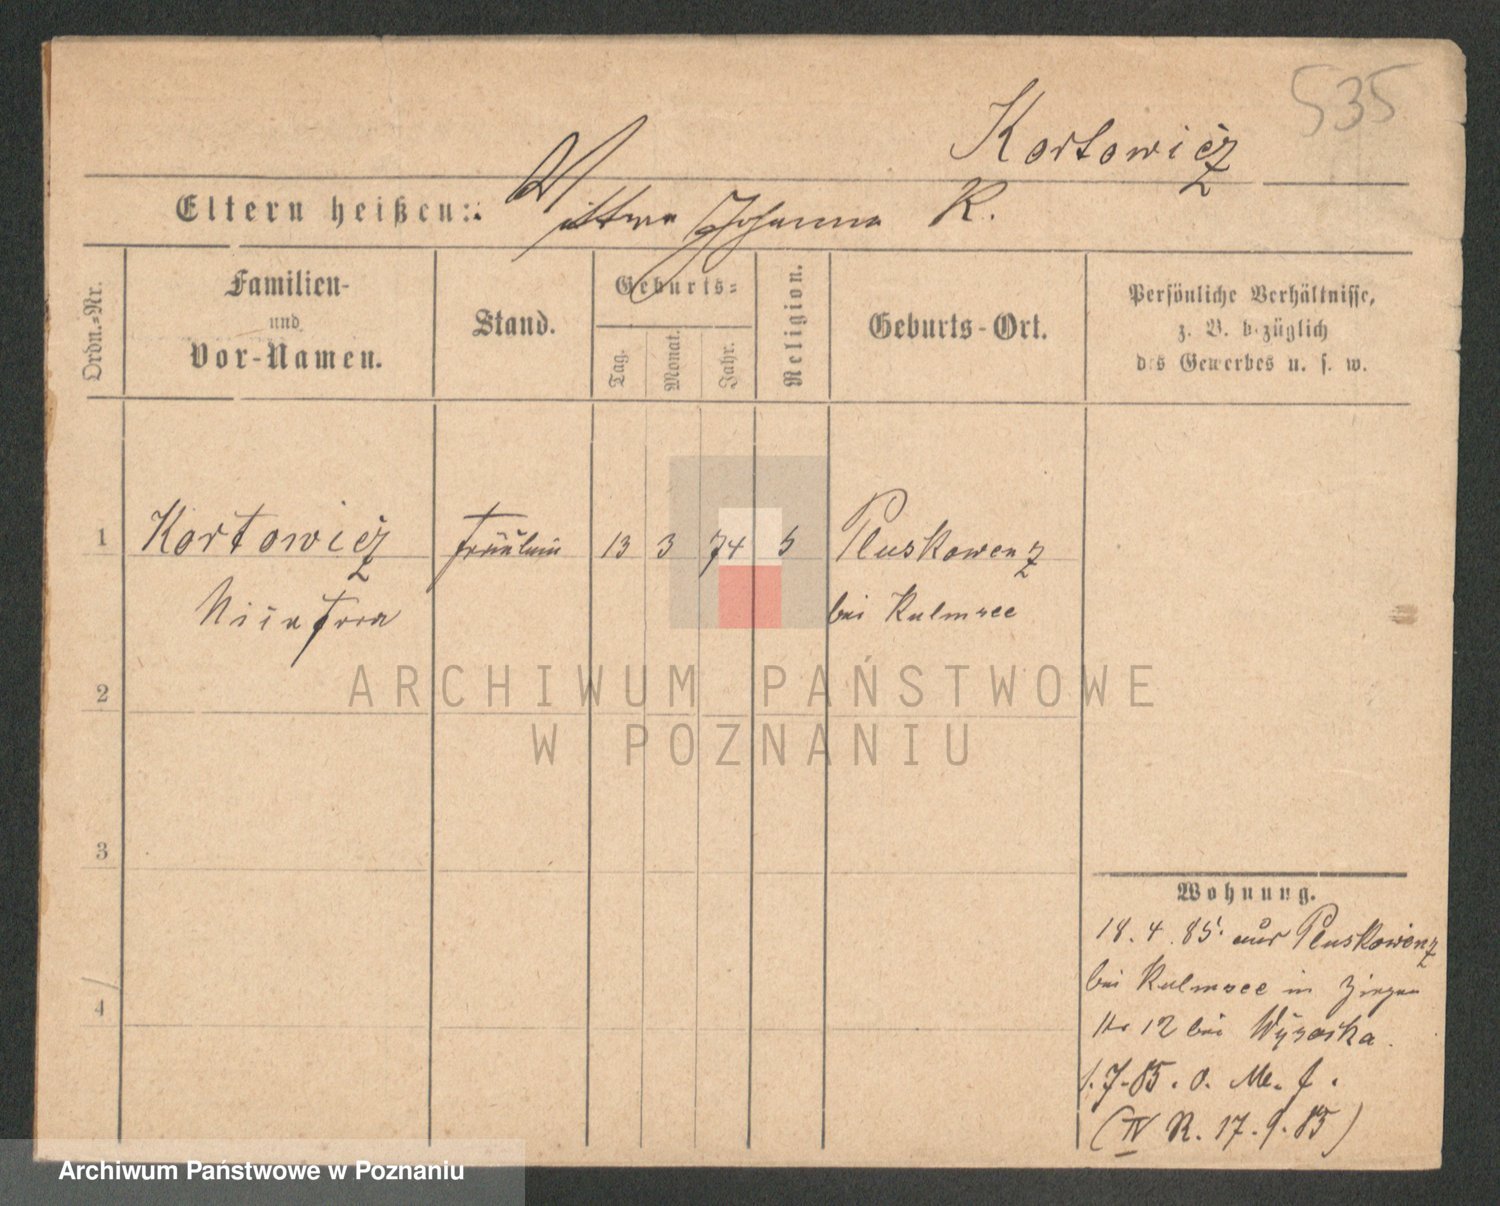 535
Kortowicz
Eltern heißen: Wittwe Johanna K.
Ordn.-Nr.
Familien-
und
Vor-Namen.
Stand.
Geburts-
Tag.
Monat.
Jahr.
Religion.
Geburts-Ort.
Persönliche Verhältnisse,
z. B. bezüglich
des Gewerbes u. s. w.
1 Kortowicz Fräulein 13 3 74 Pluskowenz
bei Kulmsee
2
3
4
Wohnung.
18. 4. 85. aus Pluskowenz
bei Kulmsee in
No 12 bei Wysocka.
1. 7. 85. o. M. f.
(IV R. 17. 9. 85)
ARCHIWUM PAŃSTWOWE
W POZNANIU
Archiwum Państwowe w Poznaniu